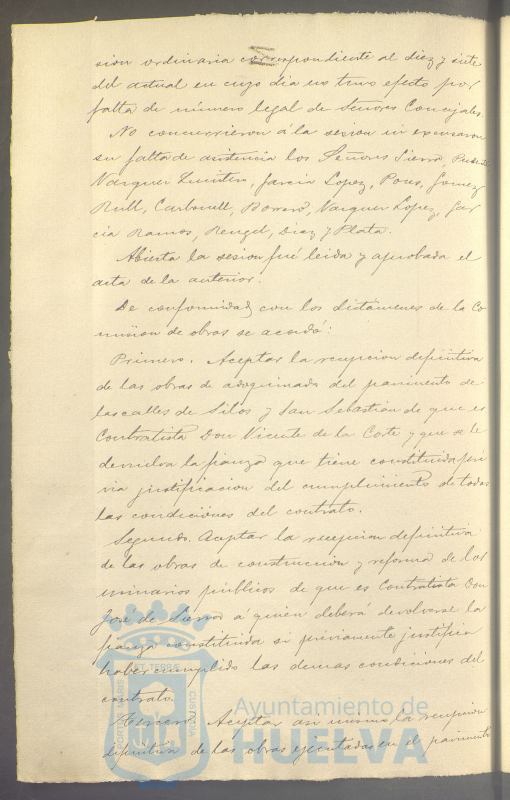 sion ordinaria correspondiente al diez y siete
del actual en cuyo dia no tuvo efecto por
falta de número legal de Señores Concejales.
No concurrieron á la sesion ni excusaron
su falta de asistencia los Señores Sierra,
Vazquez Garcia Lopez, Pons, Gomez
Rull, Carbonell, Borrero, Vazquez Lopez, Gar
cia Ramos, Rengel, Diaz y Plata.
Abierta la sesion fué leida y aprobada el
acta de la anterior.
De conformidad con los dictámenes de la Co
mision de obras se acordó:
Primero. Aceptar la recepcion definitiva
de las obras de adoquinado del pavimento de
las calles de Silos y San Sebastian de que es
Contratista Don Vicente de la Corte y que se le
devuelva la fianza que tiene constituida pré
via justificacion del cumplimiento de todas
las condiciones del contrato.
Segundo. Aceptar la recepcion definitiva
de las obras de construccion y reforma de los
urinarios públicos de que es Contratista Don
José de Sierra á quien deberá devolverse la
fianza constituida si préviamente justifica
haber cumplido las demas condiciones del
contrato.
Tercero. Aceptar asi mismo la recepcion
definitiva de las obras ejecutadas en el pavimento
Ayuntamiento de
HUELVA